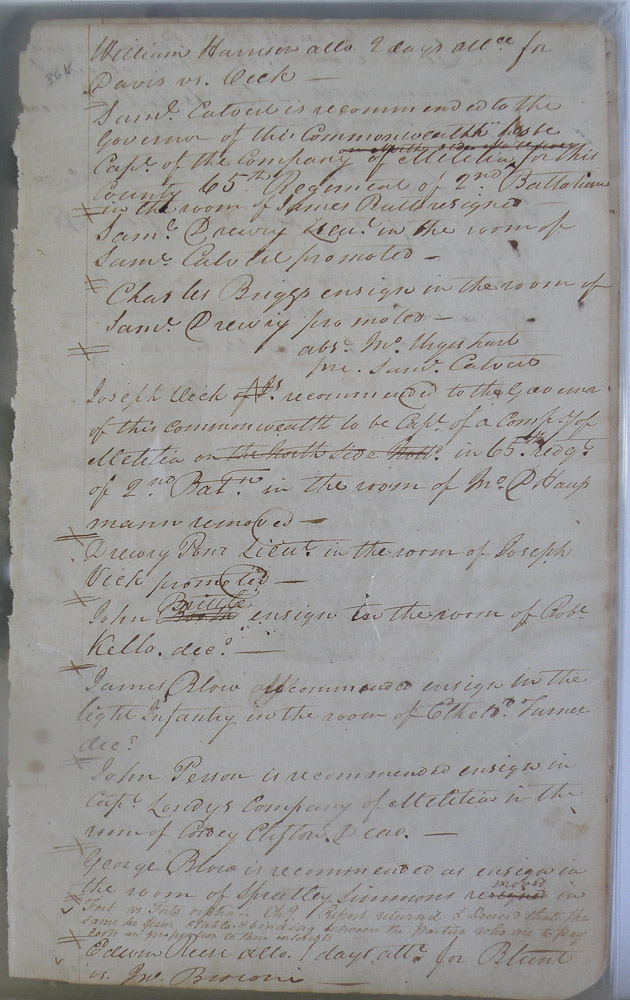 William Harrison allo 2 days allce for
Davis vs. Vick —
Saml. Calvert is recommended to the
Governor of this Commonwealth to be
Capt. of the Company of Melitia for this
County 65th Regiment of 2nd Battalion
in the room of James Butts resigned —
Saml. Drewry Lieut. in the room of
Saml. Calvert promoted —
Charles Briggs ensign in the room of
Saml. Drewry promoted —
abst. Mr. Urquhart
pre. Saml. Calvert
Joseph Vick Is recommended to the Governor
of this Commonwealth to be Capt. of a Company of
Melitia on the North Side in 65th redgt.
of 2nd Batn. in the room of Mr. D Haus
mann removed —
Drewry Lieut. in the room of Joseph
Vick promoted —
Brittle
John Booth ensign in the room of Robt.
Kello. decd. —
James Blow recommended ensign in the
light Infantry in the room of Etheld. Turner
decd.
John Person is recommended ensign in
Capt. Lundys Company of Melitia in the
room of Clifton. —
George Blow is recommended as ensign in
moved
the room of Spratley Simmons resigned in
Fort vs Forts Report returned & decreed that the
same be firm stable & binding between the parties who are to pay
costs in proportion to their interests
Edwin allo. 1 days allce. for Blunt
vs. Jno.
364